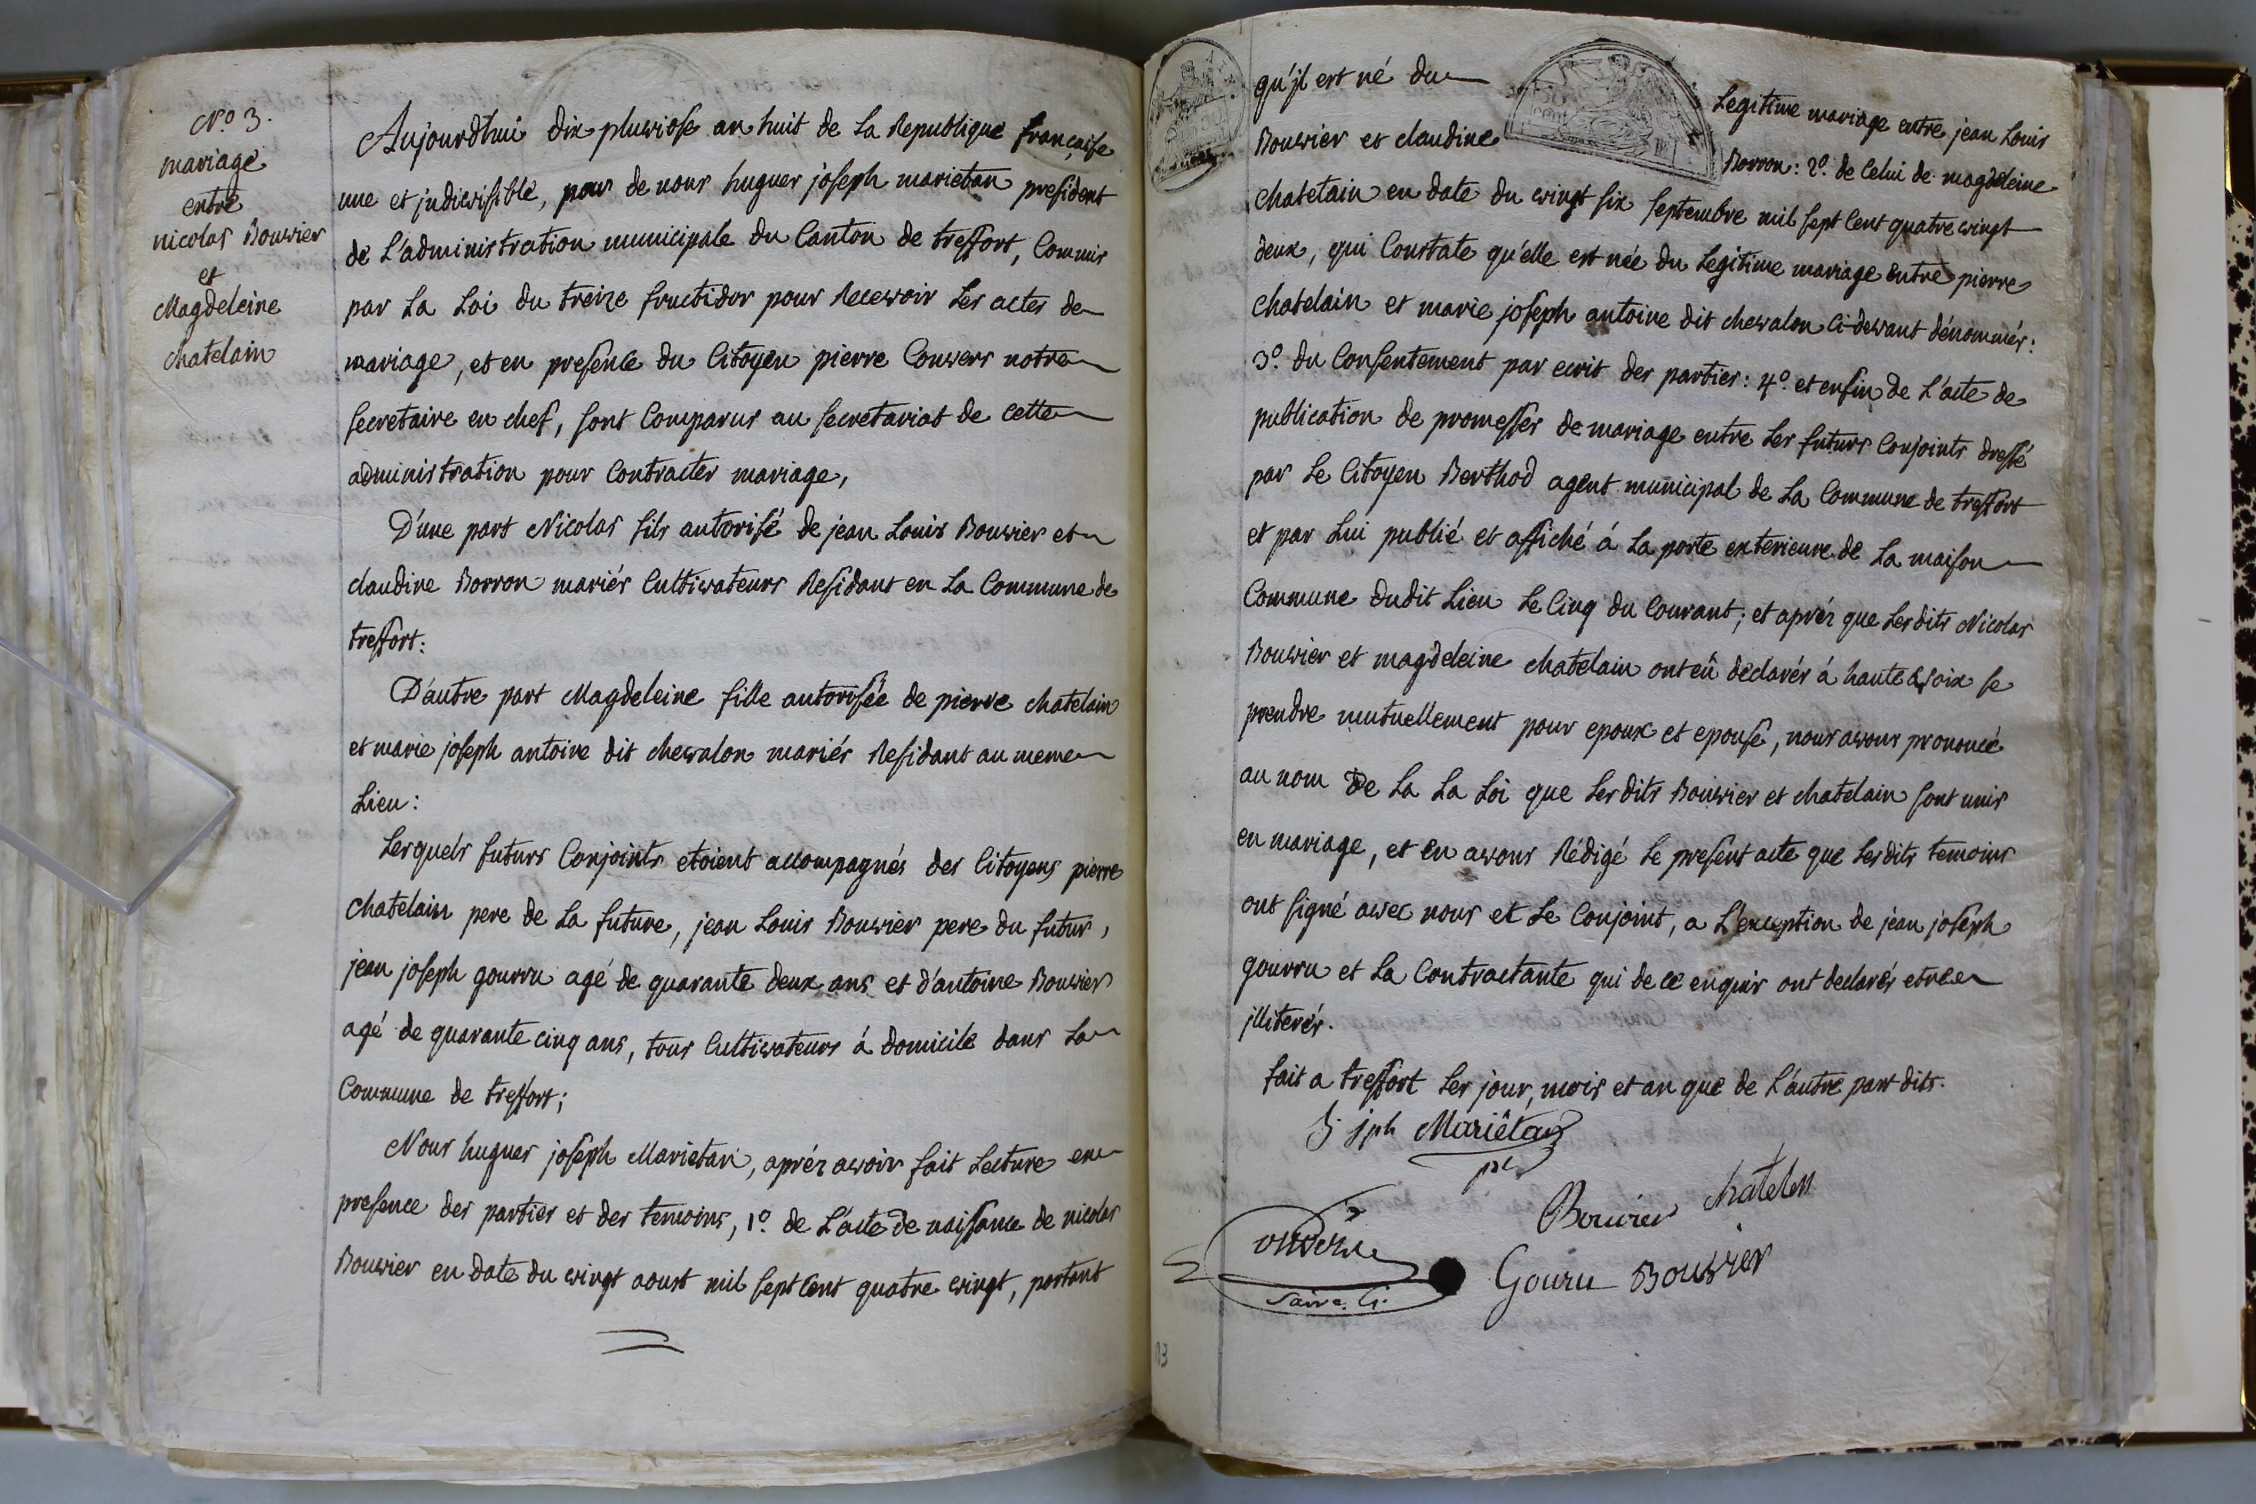 N.o 3.
mariage
entre
nicolas Bouvier
et
Magdeleine
chatelain
Aujourdhui dix pluviose an huit de la Republique française
une et jndivisible, par de nous hugues joseph marietan president
de L'administration municipale du Canton de treffort, Commis
par La Loi du treize fructidor pour Recevoir Les actes de
mariage, et en presence du Citoyen pierre Convers notre
secretaire en chef, sont Comparus au secretariat de cette
administration pour Contracter mariage,
D'une part Nicolas fils autorisé de jean Louis Bouvier et
claudine Borron mariés Cultivateurs Residant en La Commune de
treffort:
D'autre part Magdeleine fille autorisée de pierre chatelain
et marie joseph antoine dit chevalon mariés Residant au meme
Lieu:
Lesquels futurs Conjoints etoient accompagnés des Citoyens pierre
chatelain pere de La future, jean Louis Bouvier pere du futur,
jean joseph gourru agé de quarante deux ans et d'antoine Bouvier
agé de quarante cinq ans, tous Cultivateurs á domicile dans La
Commune de treffort;
Nous hugues joseph Marietan, aprés avoir fait Lecture en
presence des parties et des temoins, 1.o de L'acte de naissance de nicolas
Bouvier en date du vingt aoust mil sept Cent quatre vingt, portant
qu'jl est né du Legitime mariage entre jean Louis
Bouvier et claudine Borron: 2.o de Celui de magdeleine
chatelain en date du vingt six septembre mil sept Cent quatre vingt
deux, qui Constate qu'elle est née du Legitime mariage entre pierre
Chatelain et marie joseph antoine dit chevalon Ci-devant dénommés:
3.o du Consentement par ecrit des parties: 4.o et enfin de L'acte de
publication de promesses de mariage entre Les futurs Conjoints dressé
par Le Citoyen Berthod agent municipal de La Commune de treffort
et par Lui publié et affiché á La porte exterieure de La maison
Commune dudit Lieu Le Cinq du Courant; et aprés que Lesdits Nicolas
Bouvier et magdeleine chatelain ont eû declarés á haute voix se
prendre mutuellement pour epoux et epouse, nous avons prononcé
au nom de La La Loi que Lesdits Bouvier et chatelain sont unis
en mariage, et en avons Rédigé Le present acte que Lesdits temoins
ont signé avec nous et Le Conjoint, a L'exception de jean joseph
gourru et La Contractante qui de ce enquis ont declarés etre
jlliterés.
fait a treffort Les jour, mois et an que de L'autre part dits.
jph Mariêtan
pt
Bouvier chatelen
Convers
Gouru Bouvier